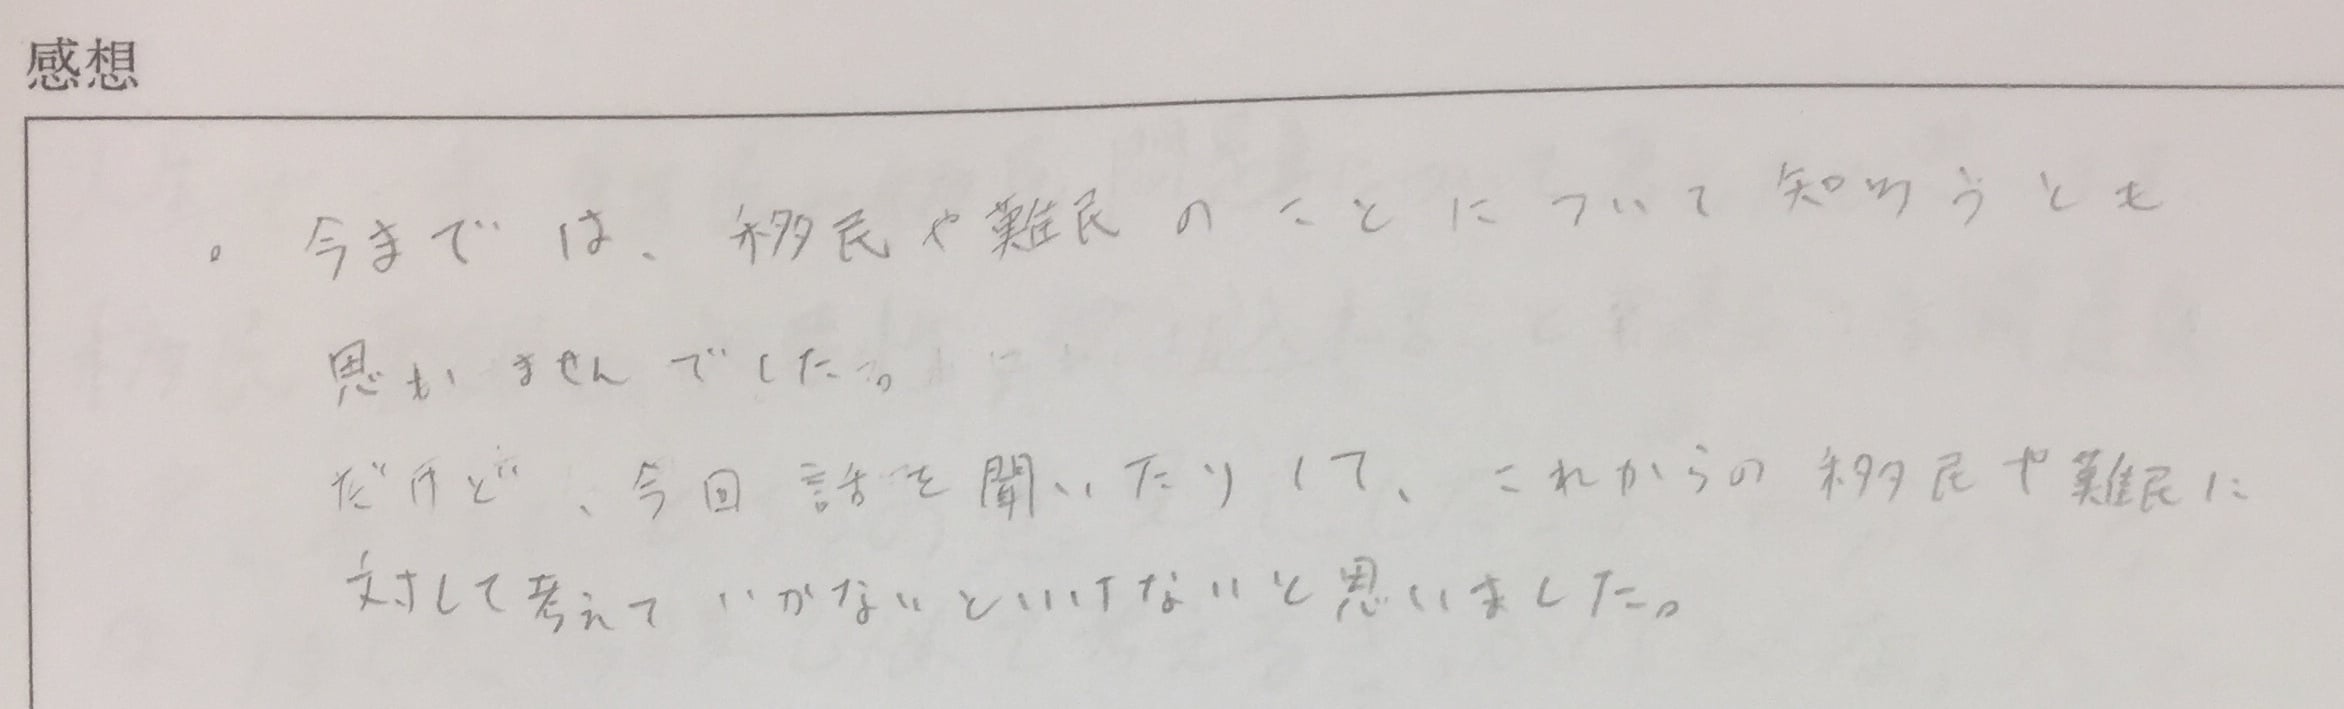 感想
。今までは、移民や難民のことについて知ろうとも
思いませんでした。
だけど、今回話を聞いたりして、これからの移民や難民に
対して考えていかないといけないと思いました。